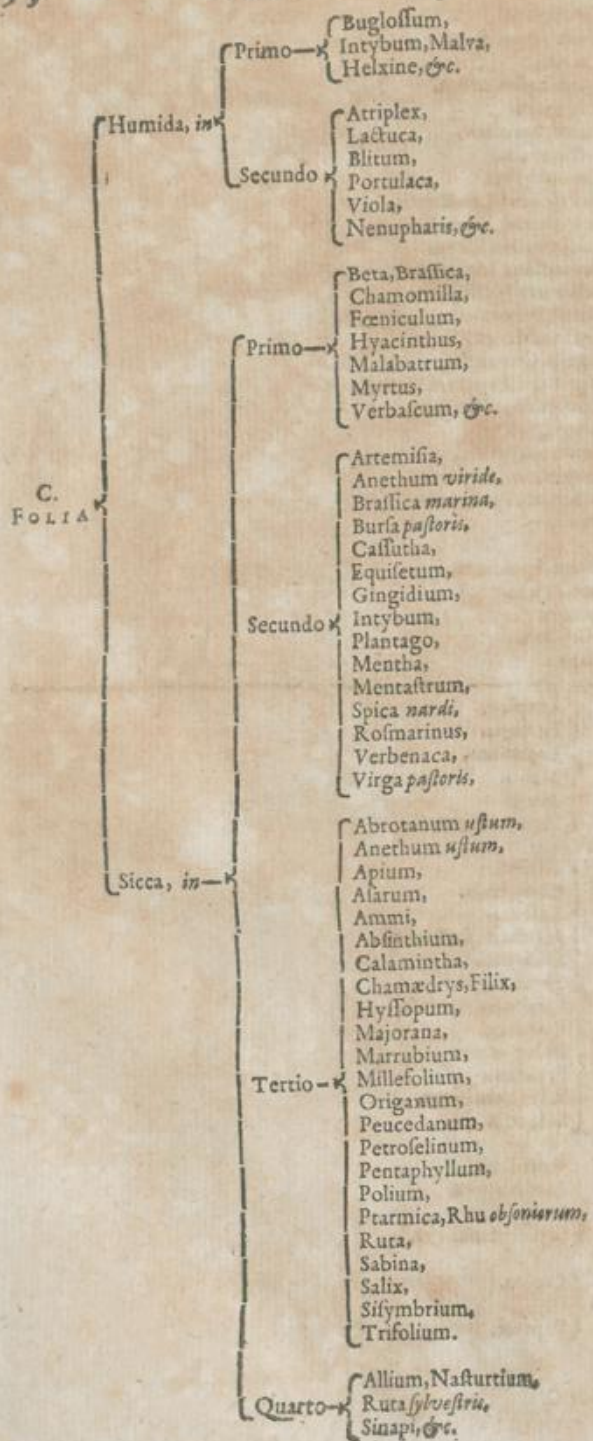 Humida, in
Primo
Bugloſſum,
Intybum, Malva,
Helxine, &c.
Secundo
Atriplex,
Lactuca,
Blitum,
Portulaca,
Viola,
Nenupharis, &c.
C.
FOLIA
Sicca, in
Primo
Beta, Braſſica,
Chamomilla,
Fœniculum,
Hyacinthus,
Malabatrum,
Myrtus,
Verbaſcum, &c.
Secundo
Artemiſia,
Anethum viride,
Braſſica marina,
Burſa paſtoris,
Caſſutha,
Equiſetum,
Gingidium,
Intybum,
Plantago,
Mentha,
Mentaſtrum,
Spica nardi,
Roſmarinus,
Verbenaca,
Virga paſtoris,
Tertio
Abrotanum uſtum,
Anethum uſtum,
Apium,
Aſarum,
Ammi,
Abſinthium,
Calamintha,
Chamædrys, Filix,
Hyſſopum,
Majorana,
Marrubium,
Millefolium,
Origanum,
Peucedanum,
Petroſelinum,
Pentaphyllum,
Polium,
Ptarmica, Rhu obſoniorum,
Ruta,
Sabina,
Salix,
Siſymbrium,
Trifolium.
Quarto
Allium, Naſturtium,
Ruta ſylveſtris,
Sinapi, &c.